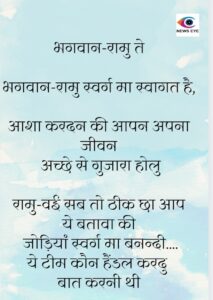 NEWS EYE
भगवान-रामु ते
भगवान-रामु स्वर्ग मा स्वागत है,
आशा करदन की आपन अपना
जीवन
अच्छे से गुजारा होलु
रामु-वई सब तो ठीक छा आप
ये बतावा की
जोड़ियाँ स्वर्ग मा बनन्दी....
ये टीम कौन हैंडल करदु
बात करनी थी